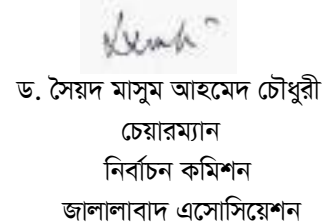 ড. সৈয়দ মাসুম আহমেদ চৌধুরী
চেয়ারম্যান
নির্বাচন কমিশন
জালালাবাদ এসোসিয়েশন